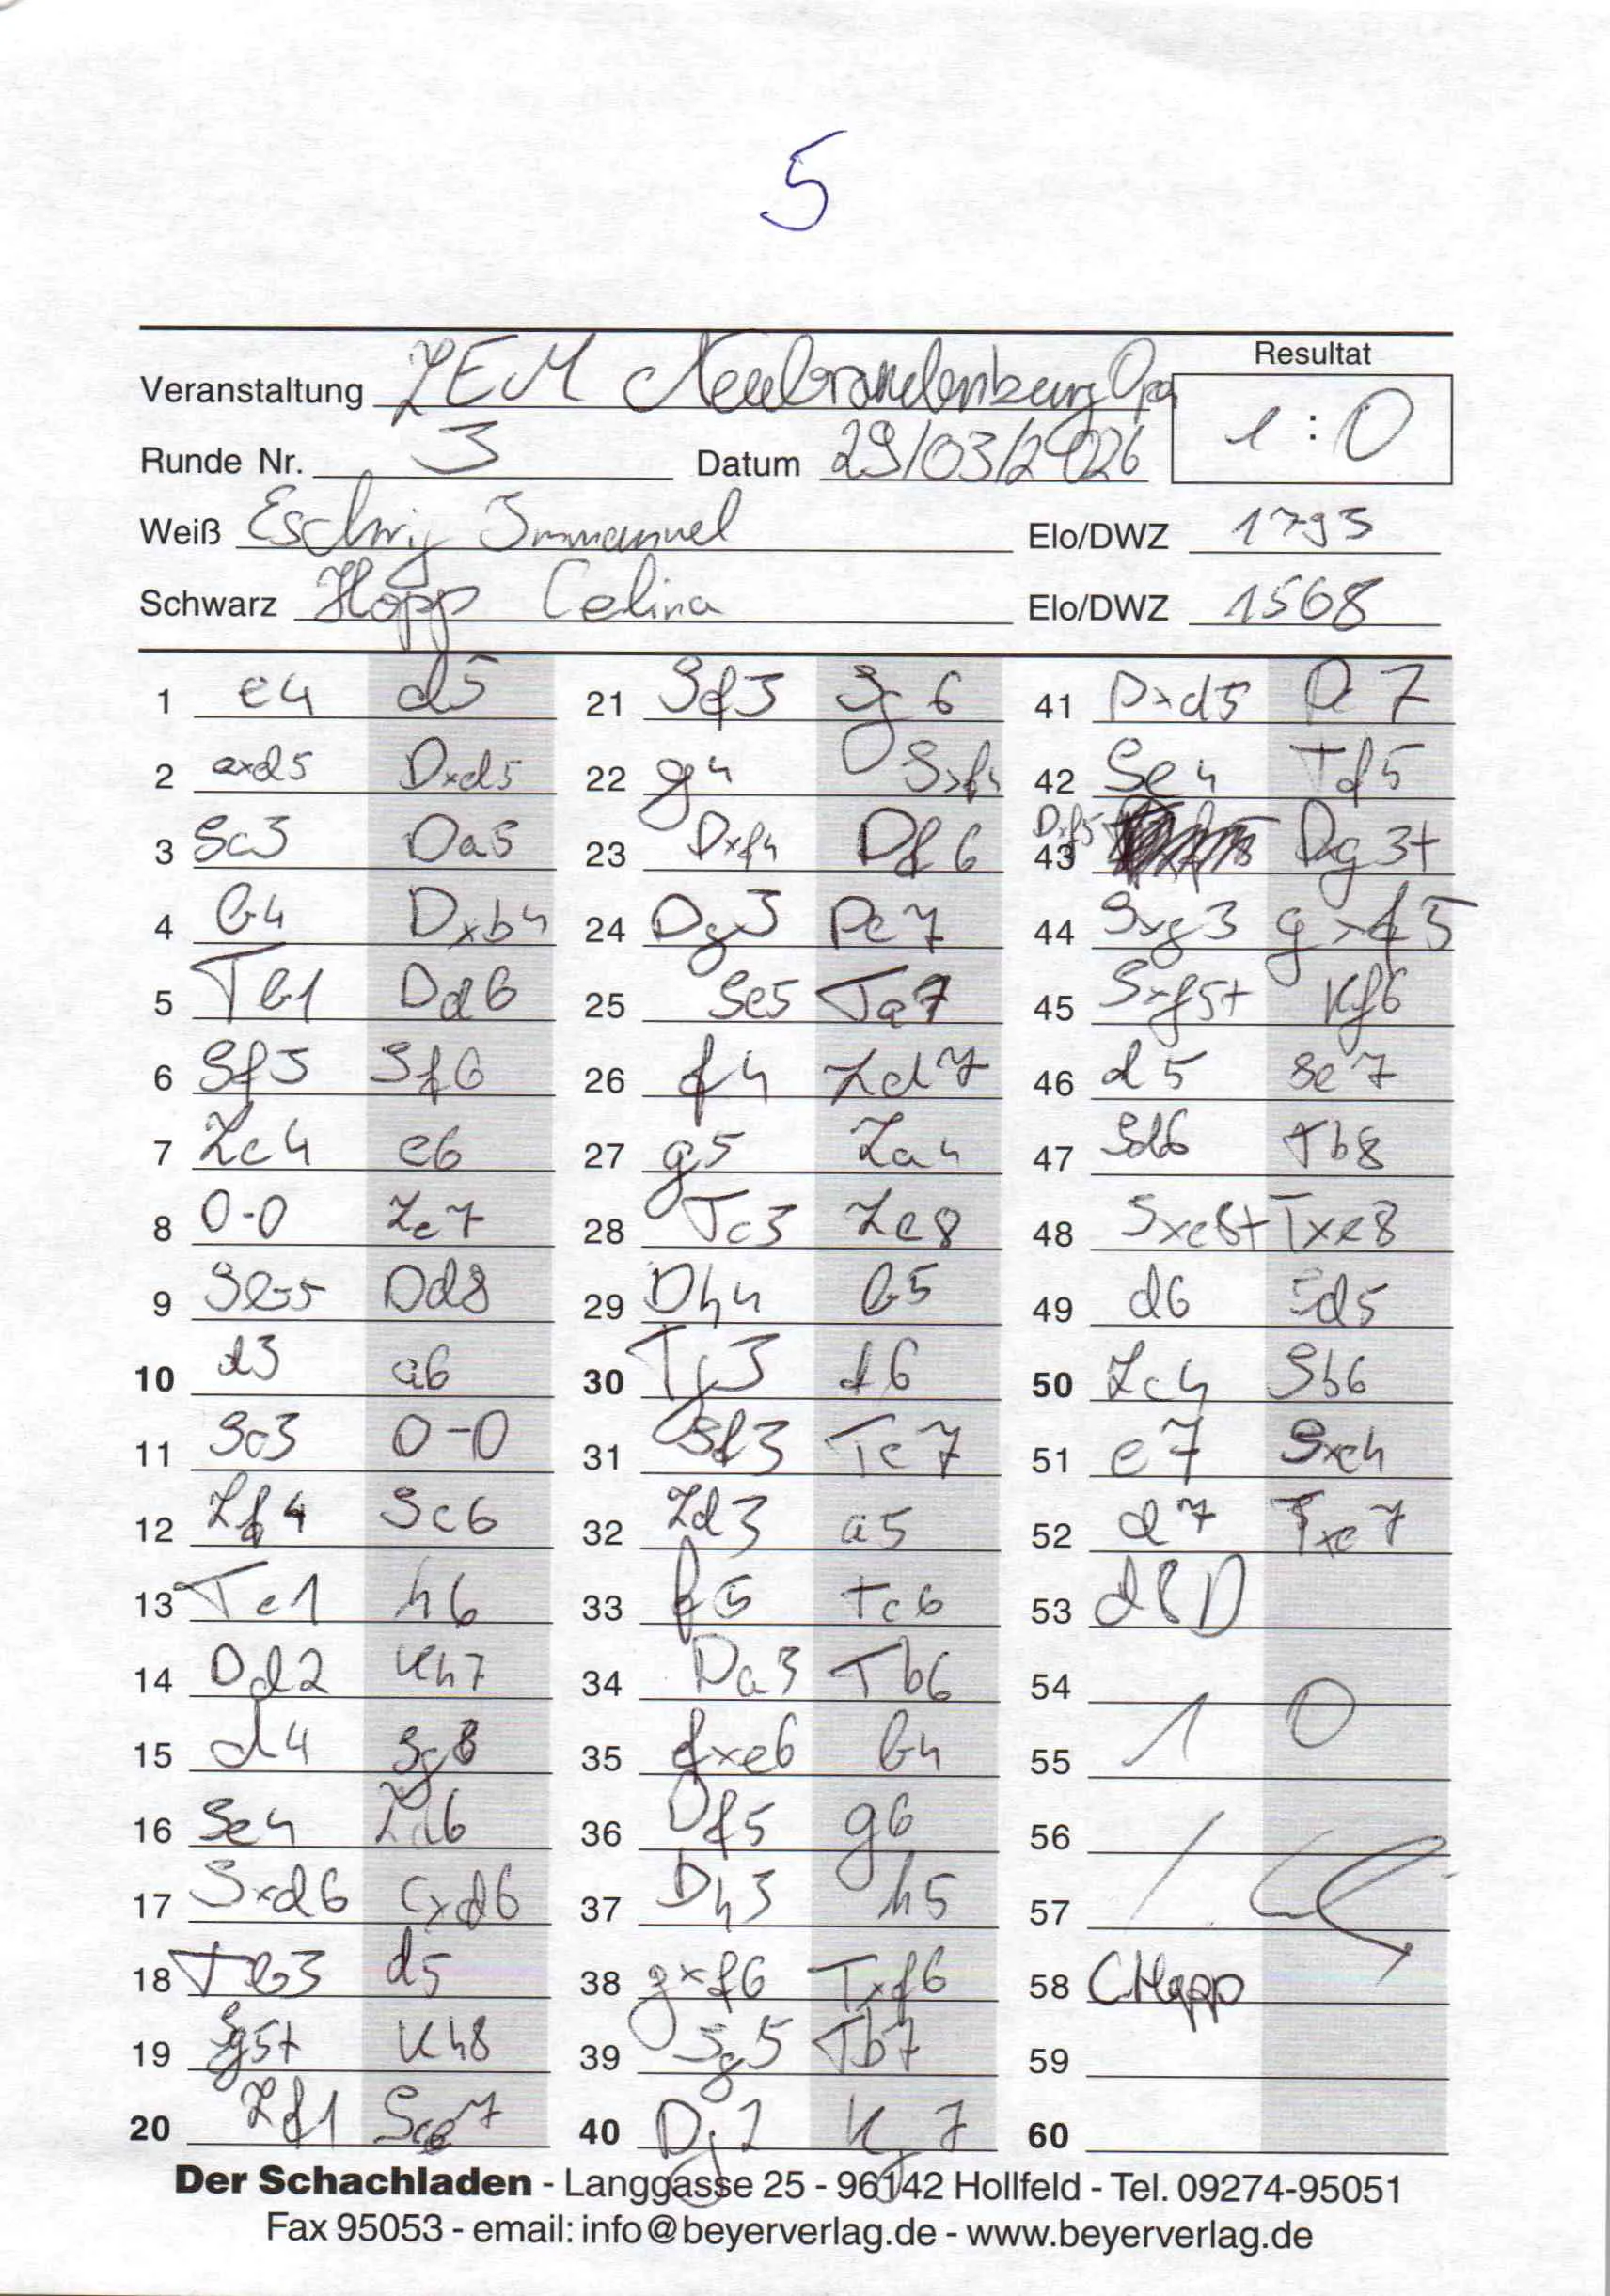 5
Resultat
Veranstaltung LEM Neubrandenburg Open
1 : 0
Runde Nr. 3 Datum 29/03/2026
Weiß Eschrig Immanuel Elo/DWZ 1793
Schwarz Hopp Celina Elo/DWZ 1568
1 e4 d5
2 exd5 Dxd5
3 Sc3 Da5
4 b4 Dxb4
5 Tb1 Dd6
6 Sf3 Sf6
7 Lc4 e6
8 0-0 Le7
9 Sb5 Dd8
10 d3 a6
11 Sc3 0-0
12 Lf4 Sc6
13 Te1 h6
14 Dd2 Kh7
15 d4 Sg8
16 Se4 Ld6
17 Sxd6 cxd6
18 Tb3 d5
19 Sg5+ Kh8
20 Lf1 Sce7
21 Sf3 Sg6
22 g4 Sxf4
23 Dxf4 Df6
24 Dg3 De7
25 Se5 Ta7
26 f4 Ld7
27 g5 La4
28 Tc3 Le8
29 Dh4 b5
30 Tg3 f6
31 Sf3 Tc7
32 Ld3 a5
33 f5 Tc6
34 Da3 Tb6
35 fxe6 b4
36 Df5 g6
37 Dh3 h5
38 gxf6 Txf6
39 Sg5 Tb7
40 Dg2 Kg7
41 Dxd5 Dc7
42 Se4 Tf5
43 Dxf5 Dg3+
44 Sxg3 gxf5
45 Sxf5+ Kf6
46 d5 Se7
47 Sd6 Tb8
48 Sxe8+ Txe8
49 d6 Sd5
50 Lc4 Sb6
51 e7 Sxc4
52 d7 Txe7
53 d8D
54
55 1 0
56
57
58 CHopp
59
60
Der Schachladen - Langgasse 25 - 96142 Hollfeld - Tel. 09274-95051
Fax 95053 - email: info@beyerverlag.de - www.beyerverlag.de